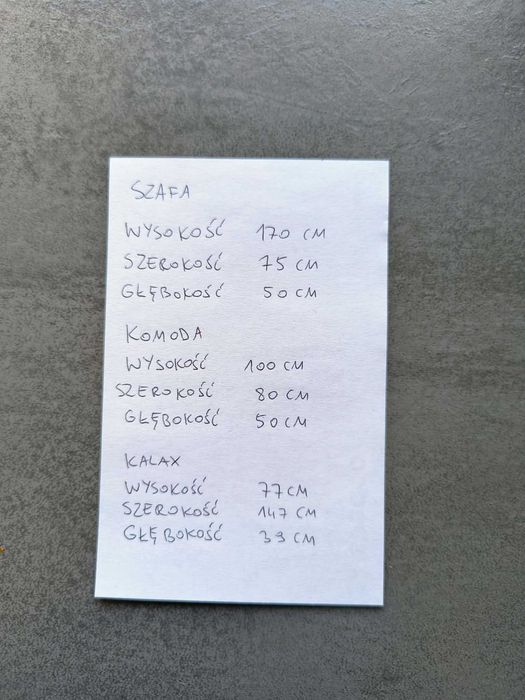 SZAFA
WYSOKOŚĆ 170 CM
SZEROKOŚĆ 75 CM
GŁĘBOKOŚĆ 50 CM
KOMODA
WYSOKOŚĆ 100 CM
SZEROKOŚĆ 80 CM
GŁĘBOKOŚĆ 50 CM
KALAX
WYSOKOŚĆ 77 CM
SZEROKOŚĆ 147 CM
GŁĘBOKOŚĆ 39 CM